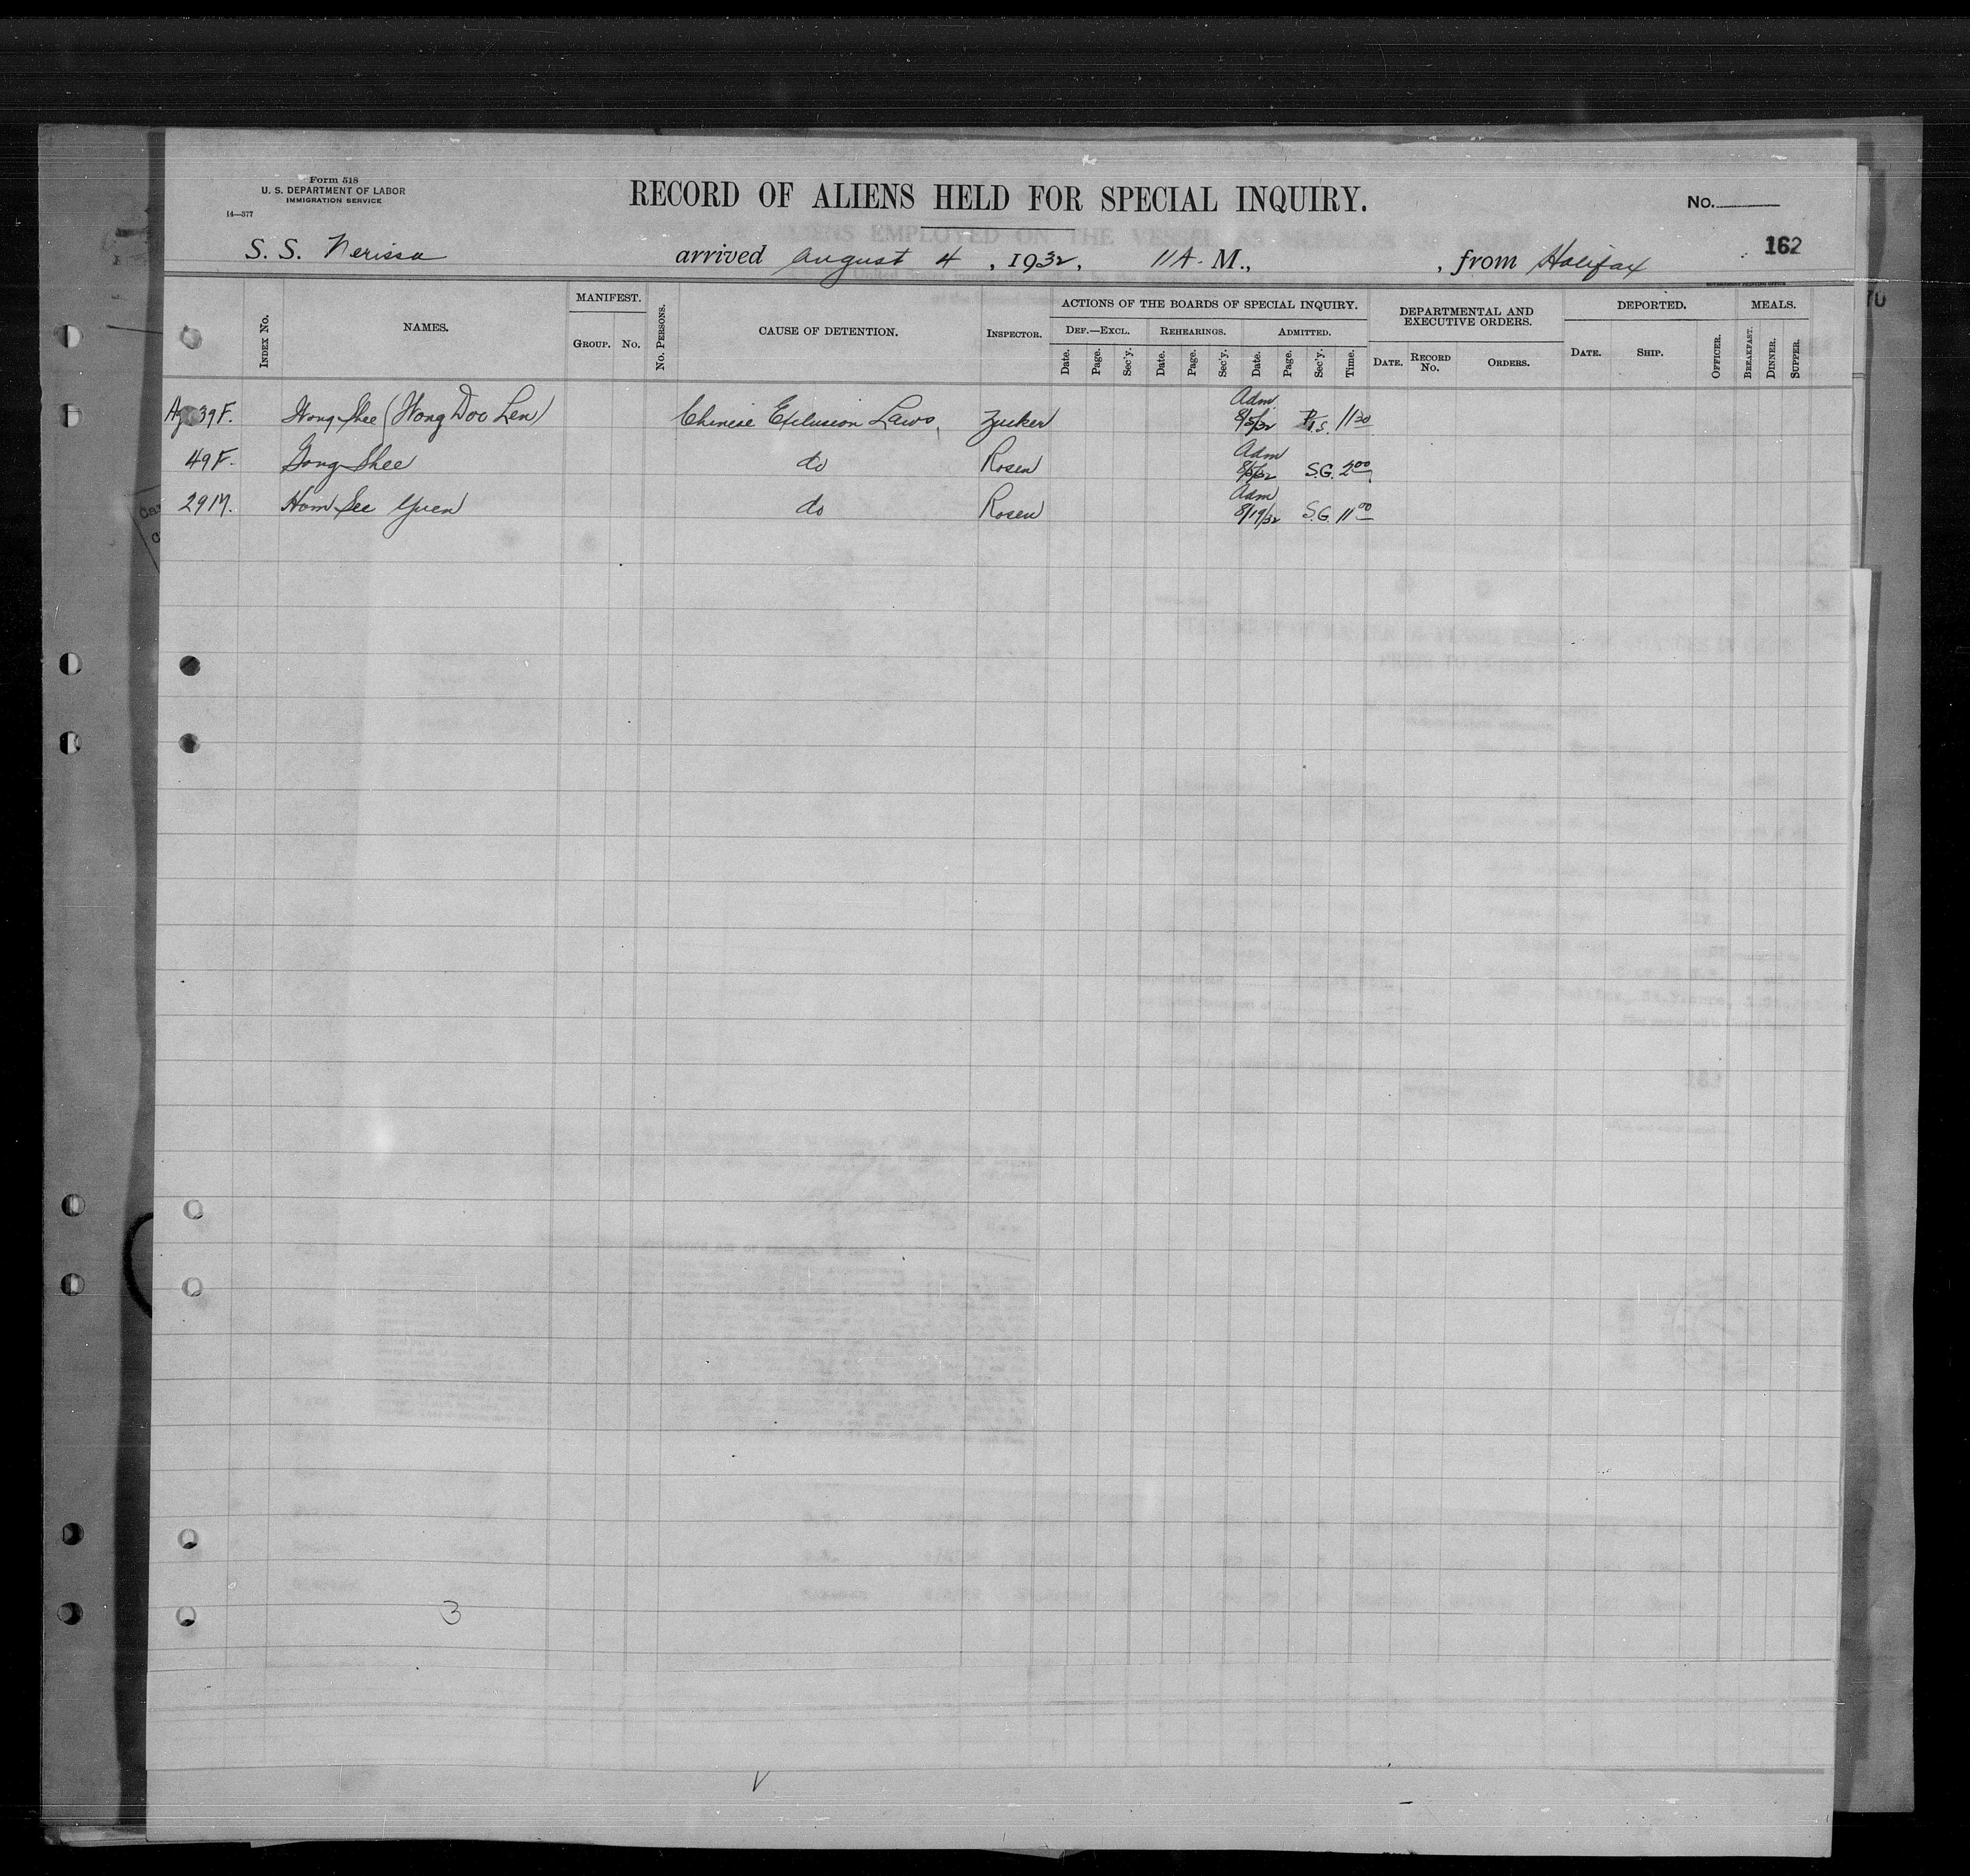 Form 518
U. S. DEPARTMENT OF LABOR
IMMIGRATION SERVICE
14—377
RECORD OF ALIENS HELD FOR SPECIAL INQUIRY.
No.
162
S. S. Nerissa arrived August 4, 1932, 11 A. M., , from Halifax
GOVERNMENT PRINTING OFFICE
INDEX No. NAMES. MANIFEST. GROUP. No. No. PERSONS. CAUSE OF DETENTION. INSPECTOR. ACTIONS OF THE BOARDS OF SPECIAL INQUIRY. DEPARTMENTAL AND EXECUTIVE ORDERS. DEPORTED. MEALS.
DEF.—EXCL. REHEARINGS. ADMITTED.
Date. Page. Sec'y. Date. Page. Sec'y. Date. Page. Sec'y. Time. DATE. RECORD No. ORDERS. DATE. SHIP. OFFICER. BREAKFAST. DINNER. SUPPER.
Age 39 F. Wong Shee (Wong Doo Len) Chinese Exclusion Laws, Zucker Adm 8/5/32 11 30
49 F. Gong Shee do Rosen Adm 8/5/32 S.G. 2 00
29 M. Hom See Yuen do Rosen Adm 8/19/32 S.G. 11 00
3